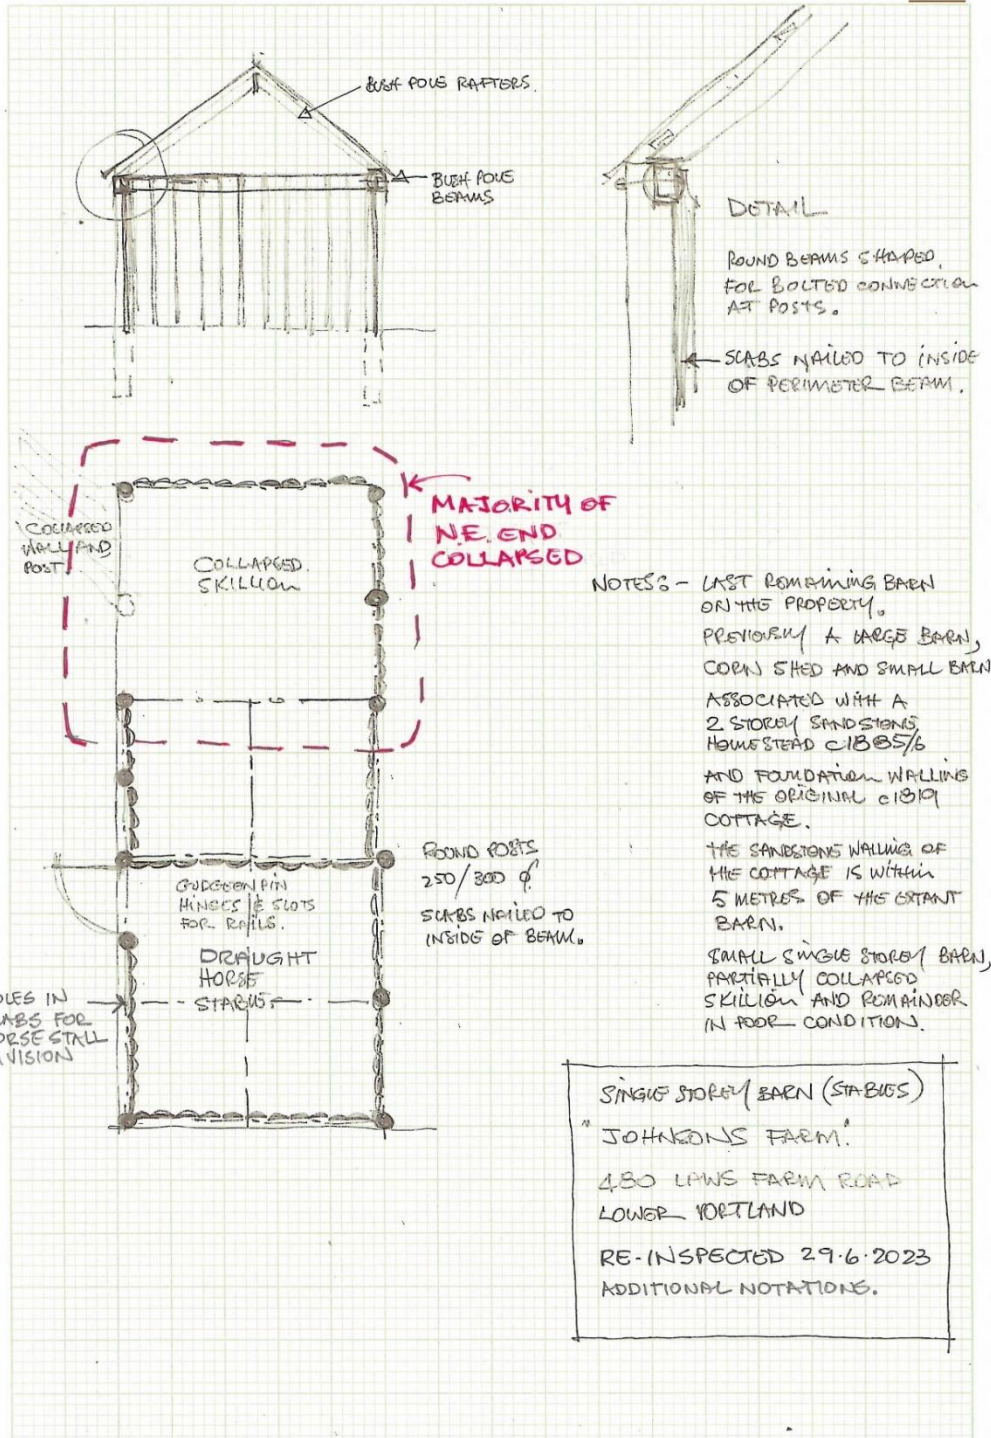 BUSH POLE RAFTERS.
BUSH POLE
BEAMS
DETAIL
ROUND BEAMS SHAPED.
FOR BOLTED CONNECTION
AT POSTS.
SLABS NAILED TO INSIDE
OF PERIMETER BEAM.
COLLAPSED
WALL AND
POST.
COLLAPSED.
SKILLION
MAJORITY OF
N.E. END
COLLAPSED
NOTES:- LAST REMAINING BARN
ON THE PROPERTY.
PREVIOUSLY A LARGE BARN,
CORN SHED AND SMALL BARN
ASSOCIATED WITH A
2 STOREY SANDSTONE
HOMESTEAD C1885/6
AND FOUNDATION WALLING
OF THE ORIGINAL C1819
COTTAGE.
THE SANDSTONE WALLING OF
THE COTTAGE IS WITHIN
5 METRES OF THE EXTANT
BARN.
SMALL SINGLE STOREY BARN,
PARTIALLY COLLAPSED
SKILLION AND REMAINDER
IN POOR CONDITION.
ROUND POSTS
250/300 Ø.
SLABS NAILED TO
INSIDE OF BEAM.
GUDGEON PIN
HINGES & SLOTS
FOR RAILS.
DRAUGHT
HORSE
STABLE
OLES IN
LABS FOR
ORSE STALL
IVISION
SINGLE STOREY BARN (STABLES)
"JOHNSONS FARM."
480 LAWS FARM ROAD
LOWER PORTLAND
RE-INSPECTED 29.6.2023
ADDITIONAL NOTATIONS.